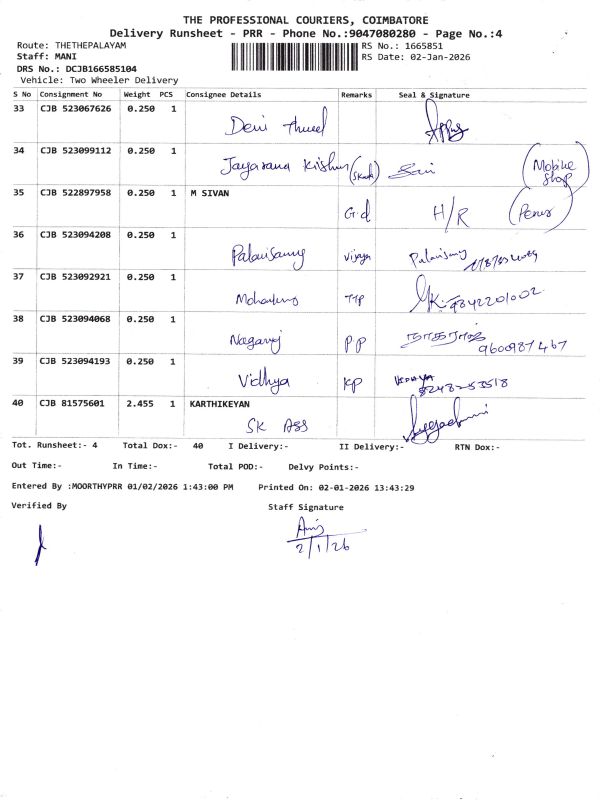 THE PROFESSIONAL COURIERS, COIMBATORE
Delivery Runsheet - PRR - Phone No.:9047080280 - Page No.:4
Route: THETHEPALAYAM
RS No.: 1665851
Staff: MANI
RS Date: 02-Jan-2026
DRS No.: DCJB166585104
Vehicle: Two Wheeler Delivery
S No Consignment No Weight PCS Consignee Details Remarks Seal & Signature
33 CJB 523067626 0.250 1
Devi
34 CJB 523099112 0.250 1
Jayarana Krishn Sai (Mobile Shop)
35 CJB 522897958 0.250 1 M SIVAN
G.d H/R
36 CJB 523094208 0.250 1
Palanisamy Vijaya Palanisamy
37 CJB 523092921 0.250 1
TTP 9842201002
38 CJB 523094068 0.250 1
Nagaraj PP நாகராஜ்
9600987467
39 CJB 523094193 0.250 1
Vidhya KP VIDHYA
8248253518
40 CJB 81575601 2.455 1 KARTHIKEYAN
SK ASS
Tot. Runsheet:- 4 Total Dox:- 40 I Delivery:- II Delivery:- RTN Dox:-
Out Time:- In Time:- Total POD:- Delvy Points:-
Entered By :MOORTHYPRR 01/02/2026 1:43:00 PM Printed On: 02-01-2026 13:43:29
Verified By Staff Signature
2/1/26